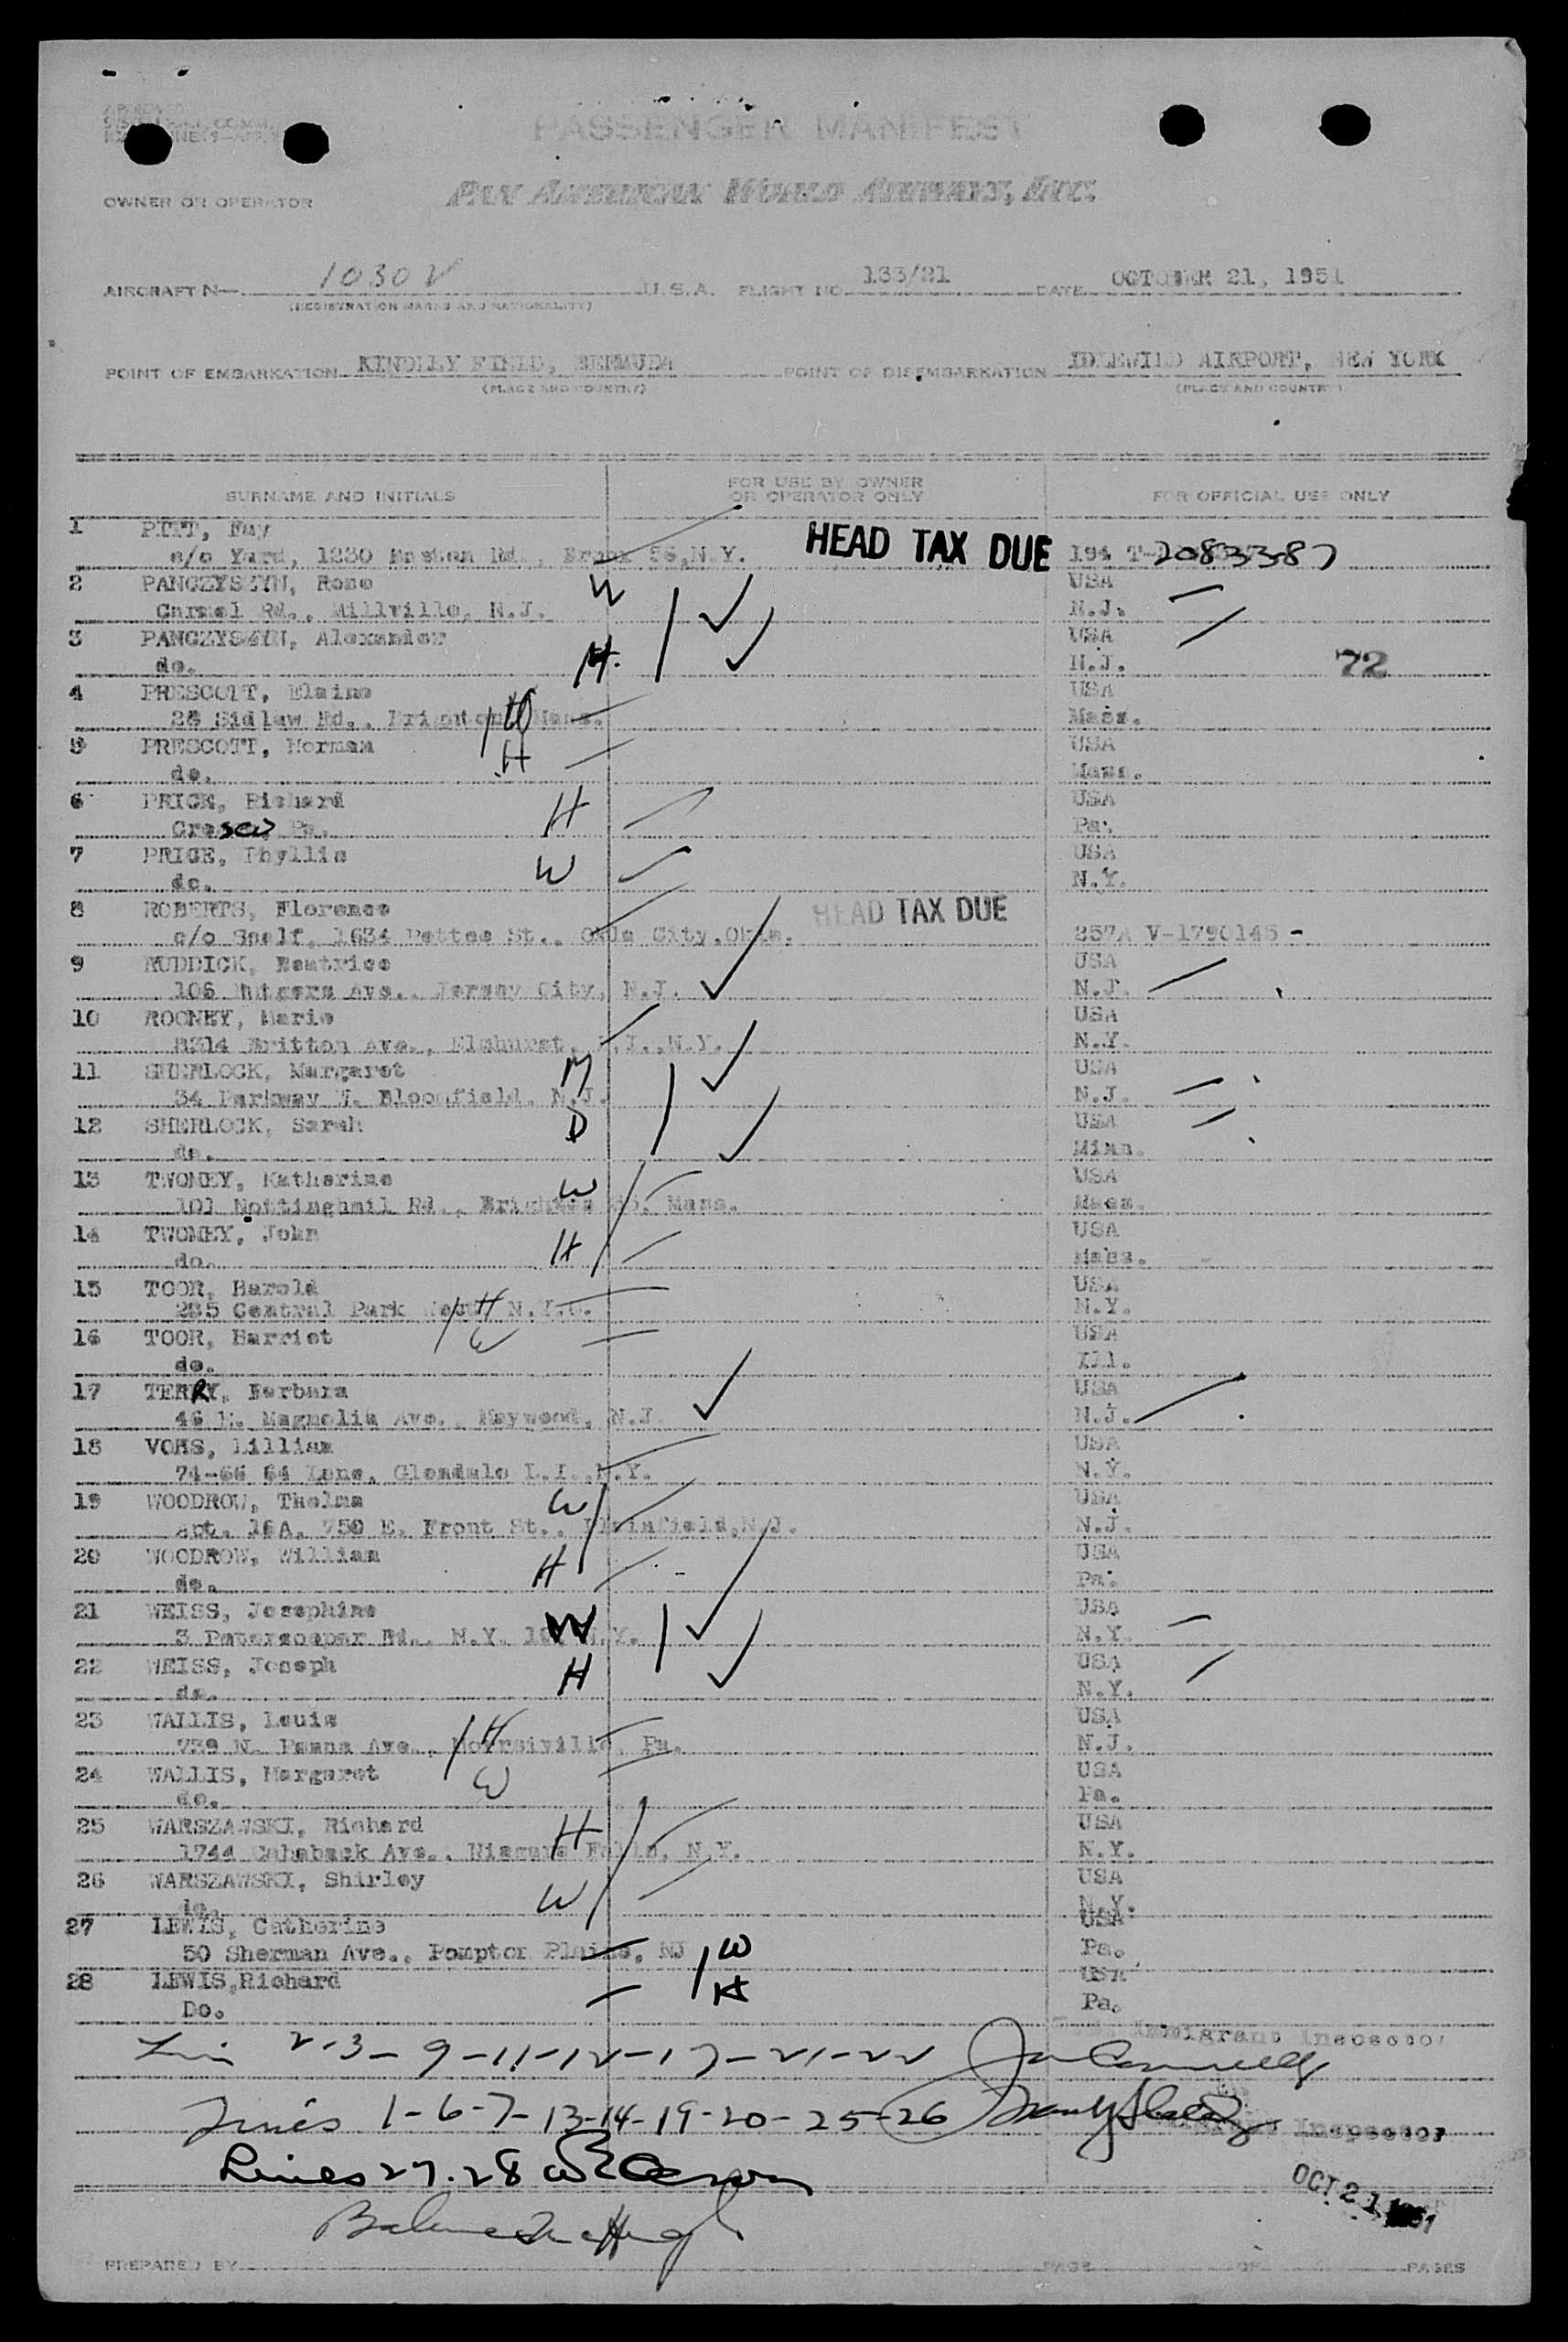 PASSENGER MANIFEST
PAN AMERICAN WORLD AIRWAYS, INC.
OWNER OR OPERATOR
AIRCRAFT N— 1030V U.S.A. FLIGHT NO. 133/21 DATE OCTOBER 21, 1951
(REGISTRATION MARKS AND NATIONALITY)
POINT OF EMBARKATION KINDLLY FIELD, BERMUDA POINT OF DISEMBARKATION IDLEWILD AIRPORT, NEW YORK
(PLACE AND COUNTRY) (PLACE AND COUNTRY)
SURNAME AND INITIALS FOR USE BY OWNER OR OPERATOR ONLY FOR OFFICIAL USE ONLY
1 Fay
c/o Yard, 1230 Rd., 56, N.Y. HEAD TAX DUE 194 T-2083387
2 PANCZYSZYN, Rose W USA
Carmel Rd., Millville, N.J. N.J.
3 PANCZYSZYN, Alexander USA
do. H. N.J. 72
4 PRESCOTT, Elaine W USA
28 Sidlaw Rd., Brighton, Mass. Mass.
5 PRESCOTT, Norman H USA
do. Mass.
6 PRICE, Richard H USA
Cresco, Pa. Pa.
7 PRICE, Phyllis W USA
do. N.Y.
8 ROBERTS, Florence HEAD TAX DUE
c/o Snelf, 1634 Pettee St., Okla City, Okla. 257A V-1790145 -
9 RUDDICK, Beatrice USA
106 Rutgers Ave., Jersey City, N.J. N.J.
10 ROONEY, Marie USA
8314 Britton Ave., Elmhurst, L.I., N.Y. N.Y.
11 SHERLOCK, Margaret M USA
34 Parkway W. Bloomfield, N.J. N.J.
12 SHERLOCK, Sarah D USA
do. Minn.
13 TWOMEY, Katherine W USA
101 Nottinghail Rd., Brighton 35, Mass. Mass.
14 TWOMEY, John H USA
do. Mass.
15 TOOR, Harold USA
285 Central Park West H N.Y.C. N.Y.
16 TOOR, Harriet W USA
do. Ill.
17 TERRY, Barbara USA
46 E. Magnolia Ave., Maywood, N.J. N.J.
18 VOHS, Lillian USA
74-66 64 Lane, Glendale L.I., N.Y. N.Y.
19 WOODROW, Thelma W USA
Apt. 16A, 750 E. Front St., Plainfield, N.J. N.J.
20 WOODROW, William H USA
do. Pa.
21 WEISS, Josephine W USA
3 Peterscooper Rd., N.Y. 10, N.Y. N.Y.
22 WEISS, Joseph H USA
do. N.Y.
23 WALLIS, Louis H USA
739 N. Penna Ave., Morrsiville, Pa. N.J.
24 WALLIS, Margaret W USA
do. Pa.
25 WARSZAWSKI, Richard H USA
1744 Ave., Niagara Falls, N.Y. N.Y.
26 WARSZAWSKI, Shirley W USA
do. N.Y.
27 LEWIS, Catherine USA
50 Sherman Ave., Pompton Plains, NJ W Pa.
28 LEWIS, Richard H USA
Do. Pa.
Immigrant Inspector
2-3-9-11-12-17-21-22
Lines 1-6-7-13-14-19-20-25-26
Inspector
Lines 27-28
OCT 21 1951
PREPARED BY PAGE OF PAGES